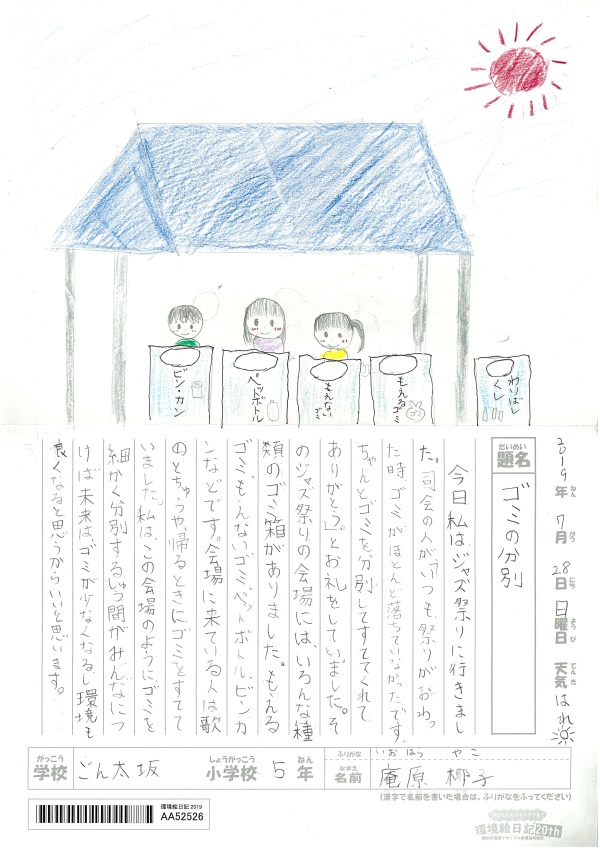 ビン・カン
ペットボトル
もえない
ゴミ
もえるゴミ
わりばし
くし
2019年ねん 7月がつ 28日にち 日曜日ようび 天気てんき はれ
だいめい
題名
ゴミの分別
今日私は、ジャズ祭りに行きまし
た。司会の人が、「いつも、祭りがおわっ
た時、ゴミがほとんど落ちていなかったです。
ちゃんとゴミを分別してすててくれて
ありがとう。」とお礼をしていました。そ
のジャズ祭りの会場には、いろんな種
類のゴミ箱がありました。もえる
ゴミ、もえないゴミ、ペットボトル、ビンカ
ンなどです。会場に来ている人は歌
のとちゅうや、帰るときに、ゴミをすてて
いました。私は、この会場のように、ゴミを
細かく分別するしゅう間がみんなにつ
けば未来は、ゴミが少なくなるし、環境も
良くなると思うからいいと思います。
がっこう
学校
ごん太坂
しょうがっこう
小学校
5
ねん
年
ふりがな
いおはら やこ
なまえ
名前
庵原 椰子
(漢字で名前を書いた場合は、ふりがなをふってください)
環境絵日記 2019
AA52526
環境絵日記20th